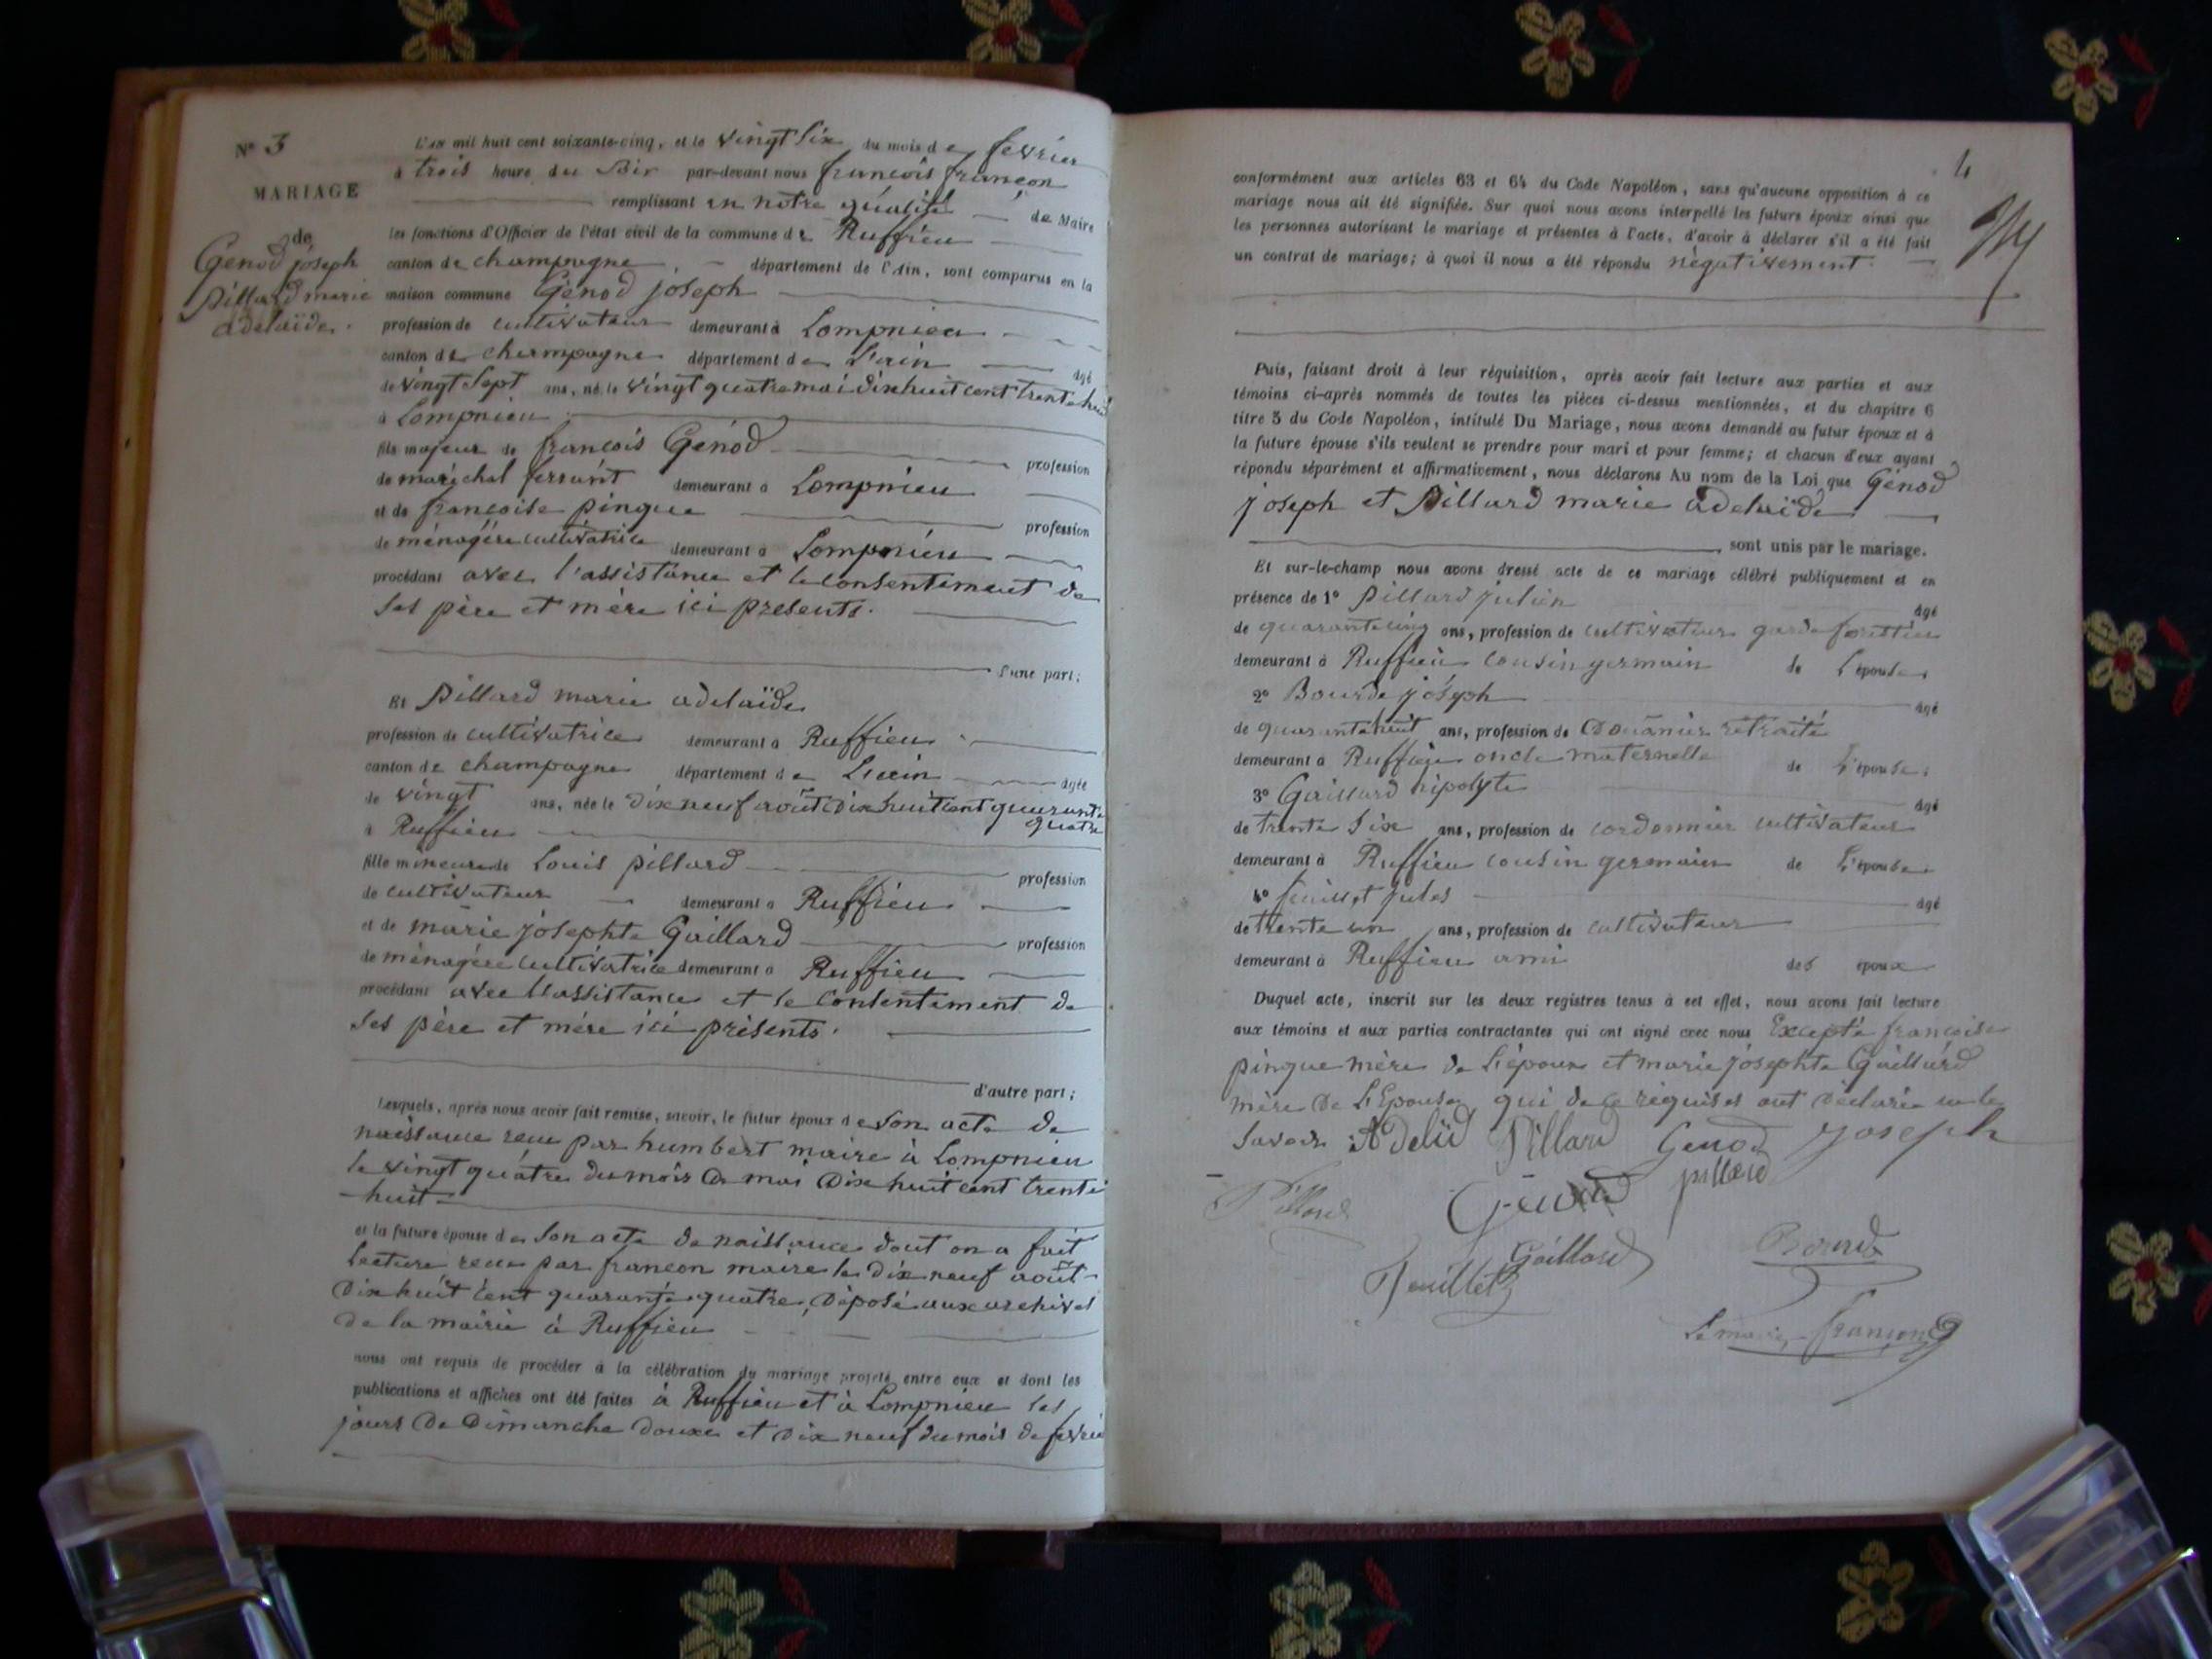 N° 3
MARIAGE
de
Génod joseph
Pillard marie
adelaïde.
L'an mil huit cent soixante-cinq, et le vingt six du mois de fevrier
à trois heure du Soir par-devant nous francois françon
remplissant en notre qualité de Maire
les fonctions d'Officier de l'état civil de la commune de Ruffieu
canton de champagne, département de l'Ain, sont comparus en la
maison commune Génod joseph
profession de cultivateur demeurant à Lompnieu
canton de champagne département de L'ain âgé
de vingt Sept ans, né le vingt quatre mai dixhuit cent trente huit
à Lompnieu
fils majeur de francois Génod profession
de maréchal ferrant demeurant à Lompnieu
et de francoise pingue profession
de ménagère cultivatrice demeurant à Lompnieu
procédant avec l'assistance et le consentement de
ses père et mère ici presents.
d'une part;
Et Pillard marie adelaïde
profession de cultivatrice demeurant à Ruffieu
canton de champagne département de L'ain âgée
de vingt ans, née le dix neuf août dix huit cent quarante
quatre
à Ruffieu
fille mineure de Louis pillard profession
de cultivateur demeurant à Ruffieu
et de marie josephte Gaillard profession
de ménagère cultivatrice demeurant à Ruffieu
procédant avec l'assistance et le consentement de
ses père et mère ici présents.
d'autre part;
Lesquels, après nous avoir fait remise, savoir, le futur époux de son acte de
naissance reçu par humbert maire à Lompnieu
le vingt quatre du mois de mai dix huit cent trente
huit
et la future épouse de son acte de naissance dont on a fait
lecture reçu par françon maire le dix neuf août
dix huit cent quarante quatre, déposé aux archives
de la mairie à Ruffieu
nous ont requis de procéder à la célébration du mariage projeté entre eux et dont les
publications et affiches ont été faites à Ruffieu et à Lompnieu les
jours de dimanche douze et dix neuf du mois de fevrier
4
conformément aux articles 63 et 64 du Code Napoléon, sans qu'aucune opposition à ce
mariage nous ait été signifiée. Sur quoi nous avons interpellé les futurs époux ainsi que
les personnes autorisant le mariage et présentes à l'acte, d'avoir à déclarer s'il a été fait
un contrat de mariage; à quoi il nous a été répondu négativement.
Puis, faisant droit à leur réquisition, après avoir fait lecture aux parties et aux
témoins ci-après nommés de toutes les pièces ci-dessus mentionnées, et du chapitre 6
titre 5 du Code Napoléon, intitulé Du Mariage, nous avons demandé au futur époux et à
la future épouse s'ils veulent se prendre pour mari et pour femme; et chacun d'eux ayant
répondu séparément et affirmativement, nous déclarons Au nom de la Loi que Génod
joseph et Pillard marie adelaïde
sont unis par le mariage.
Et sur-le-champ nous avons dressé acte de ce mariage célébré publiquement et en
présence de 1° Pillard julien âgé
de quarante cinq ans, profession de cultivateur garde forestier
demeurant à Ruffieu cousin germain de l'épouse
2° Bourde joseph âgé
de quarantehuit ans, profession de Douanier retraité
demeurant à Ruffieu oncle maternelle de L'épouse
3° Gaillard hipolyte âgé
de trente Six ans, profession de cordonnier cultivateur
demeurant à Ruffieu cousin germain de L'épouse
4° feuillet jules âgé
de trente un ans, profession de cultivateur
demeurant à Ruffieu ami des époux
Duquel acte, inscrit sur les deux registres tenus à cet effet, nous avons fait lecture
aux témoins et aux parties contractantes qui ont signé avec nous Excepté françoise
pingue mère de L'époux et marie josephte Gaillard
mère de L'Epouse qui de ce requises ont déclaré ne le
savoir. Adelïd Pillard Genod Joseph
Pillard Genod pillard
Gaillard Bourde
Feuillet
Le maire françon